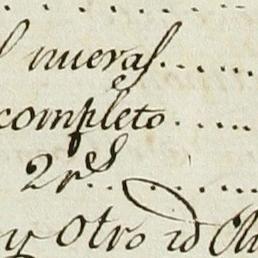 nueras.....
completo.....
2 r.s.......
y otro id